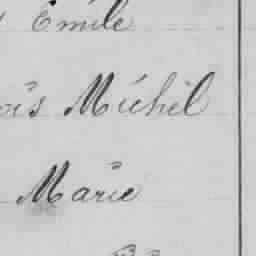 Emile
ois Michel
Marie